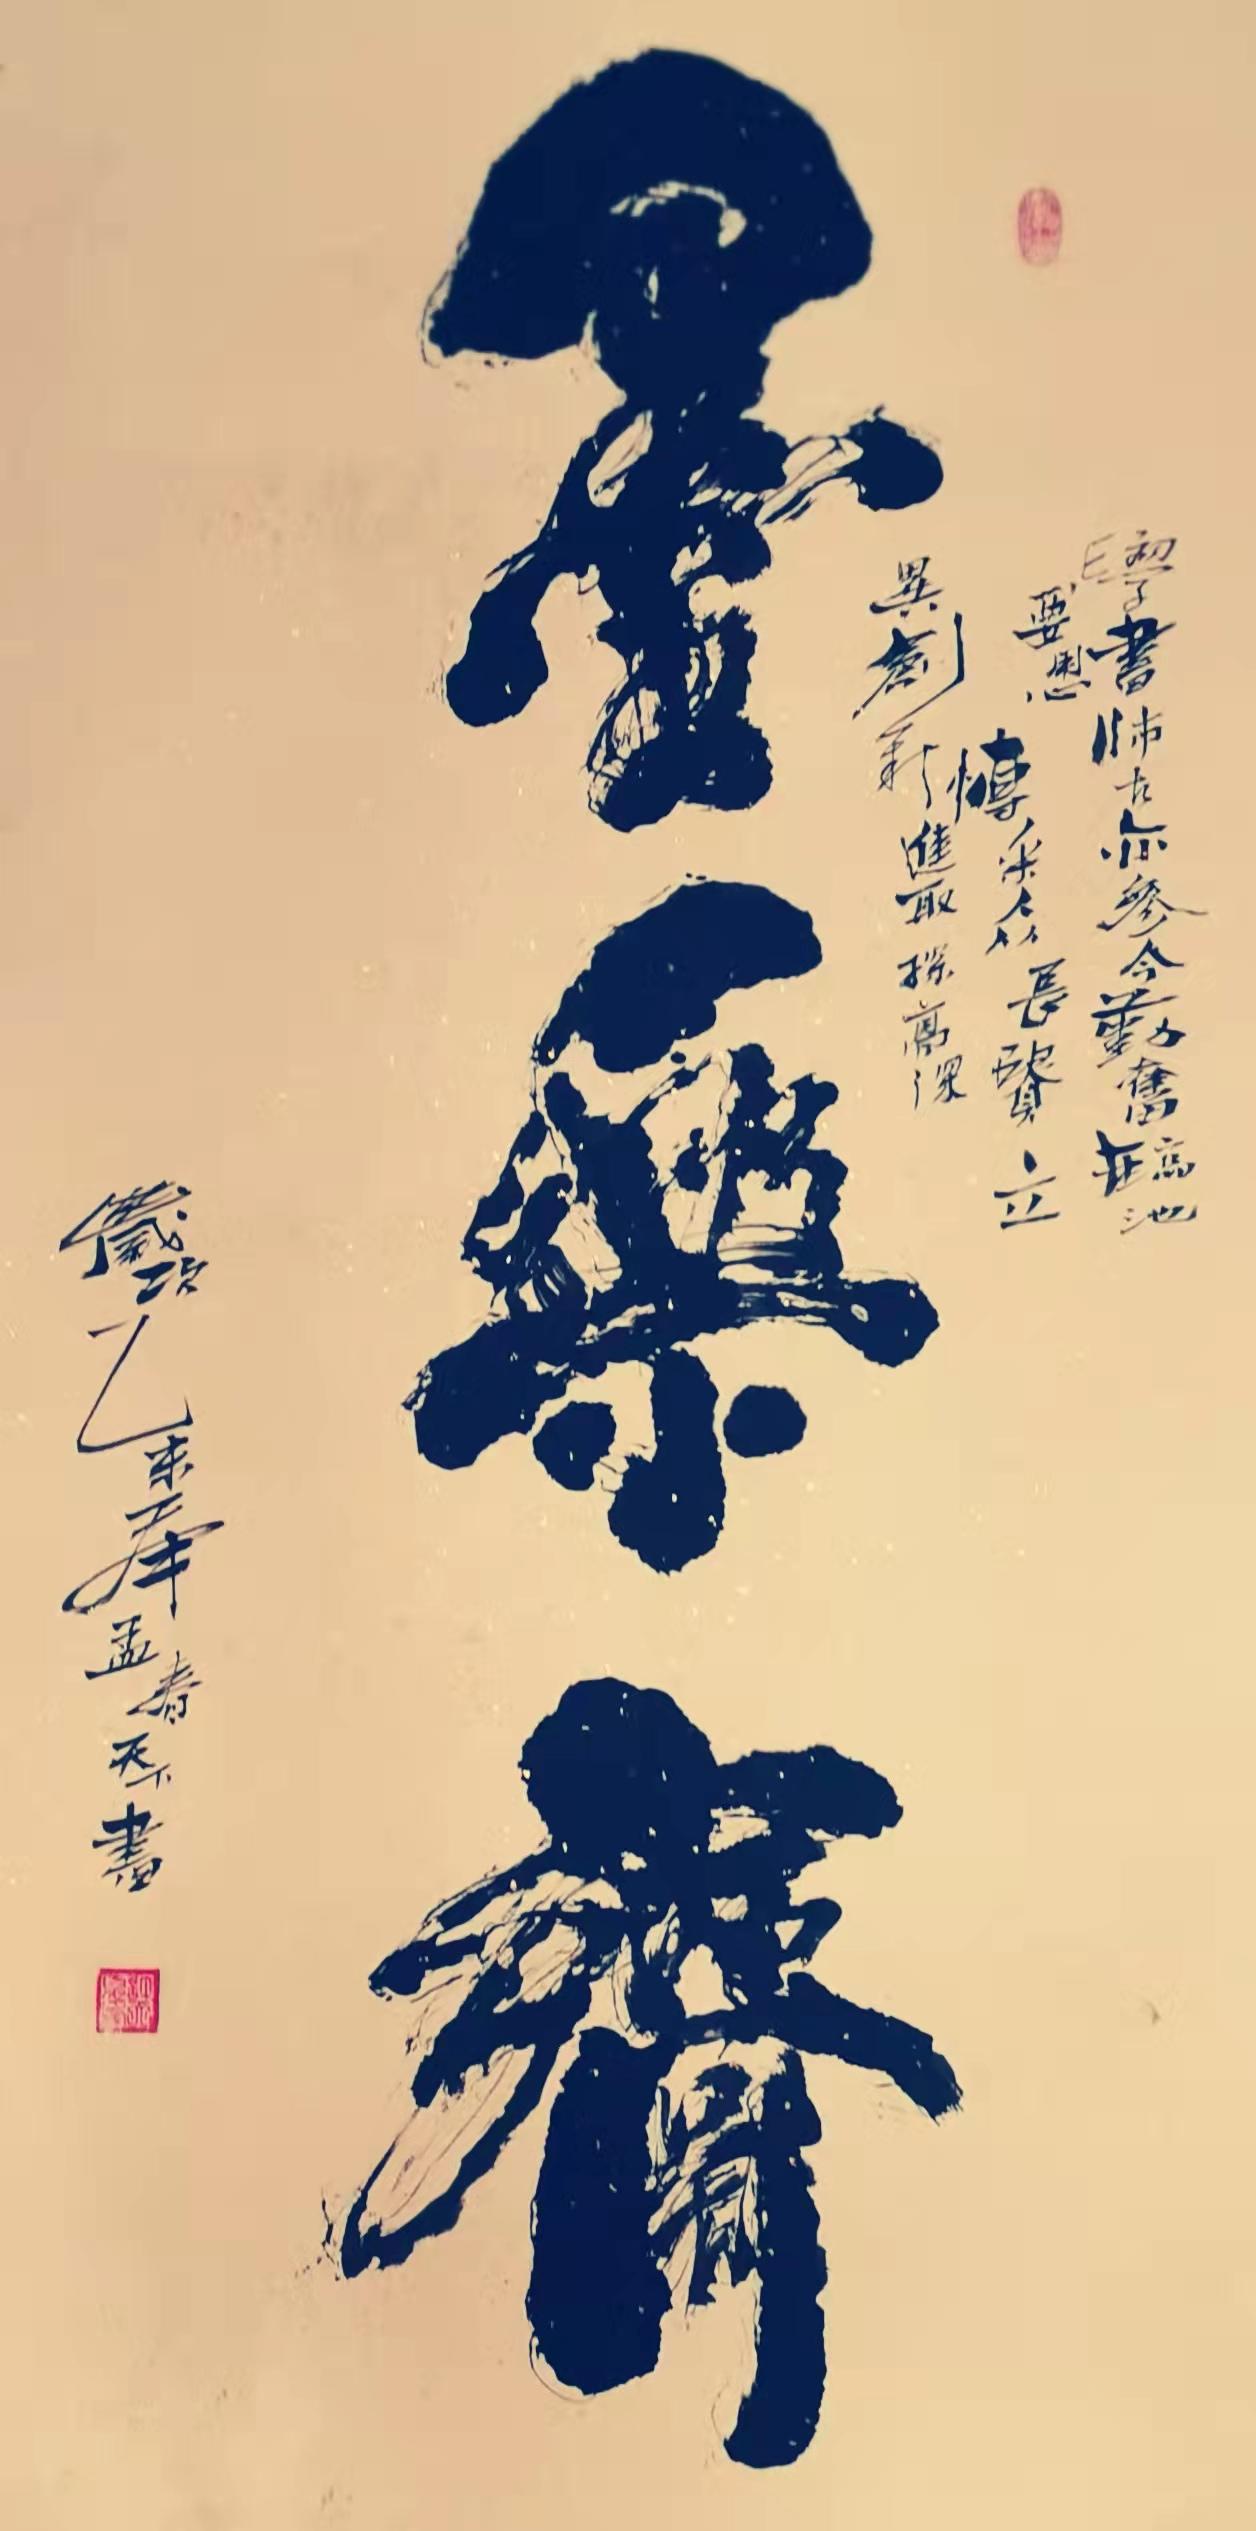 學書師古亦參今勤奮在池
要思博采众長立
異創新進取探高深
墨樂齋
歲次乙未年孟春天下書